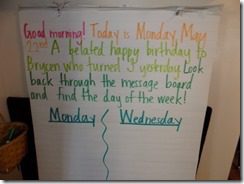 Good morning! Today is Monday, May
22nd A belated happy birthday to
Brycen who turned 3 yesterday. Look
back through the message board
and find the day of the week!
Monday Wednesday